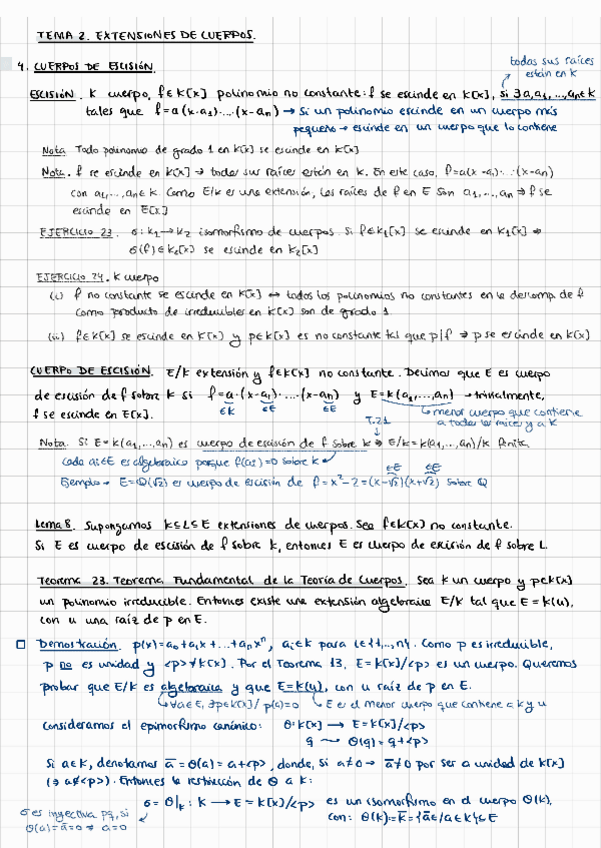 TEMA 2. EXTENSIONES DE CUERPOS.
4. CUERPOS DE ESCISIÓN.
todas sus raíces
están en K
ESCISIÓN. K cuerpo, f∈K[x] polinomio no constante: f se escinde en K[x], si ∃a,a₁,...,aₙ∈K
tales que f=a(x-a₁)·...·(x-aₙ) → Si un polinomio escinde en un cuerpo más
pequeño → escinde en un cuerpo que lo contiene
Nota. Todo polinomio de grado 1 en K[x] se escinde en K[x]
Nota. f se escinde en K[x] → todas sus raíces están en K. En este caso, f=a(x-a₁)·...·(x-aₙ)
con a₁,...,aₙ∈K. Como E/K es una extensión, las raíces de f en E son a₁,...,aₙ ⇒ f se
escinde en E[x]
EJERCICIO 23. σ: K₁→K₂ isomorfismo de cuerpos. Si f∈K₁[x] se escinde en K₁[x] ⇒
σ(f)∈K₂[x] se escinde en K₂[x]
EJERCICIO 24. K cuerpo
(i) f no constante se escinde en K[x] ↔ todos los polinomios no constantes en la descomp. de f
como producto de irreducibles en K[x] son de grado 1
(ii) f∈K[x] se escinde en K[x] y p∈K[x] es no constante tal que p|f ⇒ p se escinde en K[x]
CUERPO DE ESCISIÓN. E/K extensión y f∈K[x] no constante. Decimos que E es cuerpo
de escisión de f sobre K si f=a·(x-a₁)·...·(x-aₙ) y E=K(a₁,...,aₙ) → trivialmente,
∈K ∈E ∈E
menor cuerpo que contiene
a todas las raíces y a K
f se escinde en E[x].
T.21
Nota. Si E=K(a₁,...,aₙ) es cuerpo de escisión de f sobre K ⇒ E/K=K(a₁,...,aₙ)/K finita
cada aᵢ∈E es algebraico porque f(aᵢ)=0 sobre K
∈E ∈E
Ejemplo → E=Q(√2) es cuerpo de escisión de f=x²-2=(x-√2)(x+√2) sobre Q
Lema 8. Supongamos K≤L≤E extensiones de cuerpos. Sea f∈K[x] no constante.
Si E es cuerpo de escisión de f sobre K, entonces E es cuerpo de escisión de f sobre L.
Teorema 23. Teorema Fundamental de la Teoría de Cuerpos. Sea K un cuerpo y p∈K[x]
un polinomio irreducible. Entonces existe una extensión algebraica E/K tal que E=K(u),
con u una raíz de p en E.
Demostración. p(x)=a₀+a₁x+...+aₙxⁿ, aᵢ∈K para i∈{1,...,n}. Como p es irreducible,
p no es unidad y <p>≠K[x]. Por el Teorema 13, E=K[x]/<p> es un cuerpo. Queremos
probar que E/K es algebraica y que E=K(u), con u raíz de p en E.
∀a∈E, ∃p∈K[x]/ p(a)=0
E es el menor cuerpo que contiene a K y u
Consideramos el epimorfismo canónico: θ: K[x] → E=K[x]/<p>
q → θ(q)=q+<p>
Si a∈K, denotamos ā=θ(a)=a+<p>, donde, si a≠0 → ā≠0 por ser a unidad de K[x]
(⇒ a∉<p>). Entonces la restricción de θ a K:
σ=θ|ₖ: K → E=K[x]/<p> es un isomorfismo en el cuerpo θ(K),
con: θ(K)=K̄={ā/a∈K}≤E
σ es inyectiva pq, si
σ(a)=ā=0 ⇒ a=0